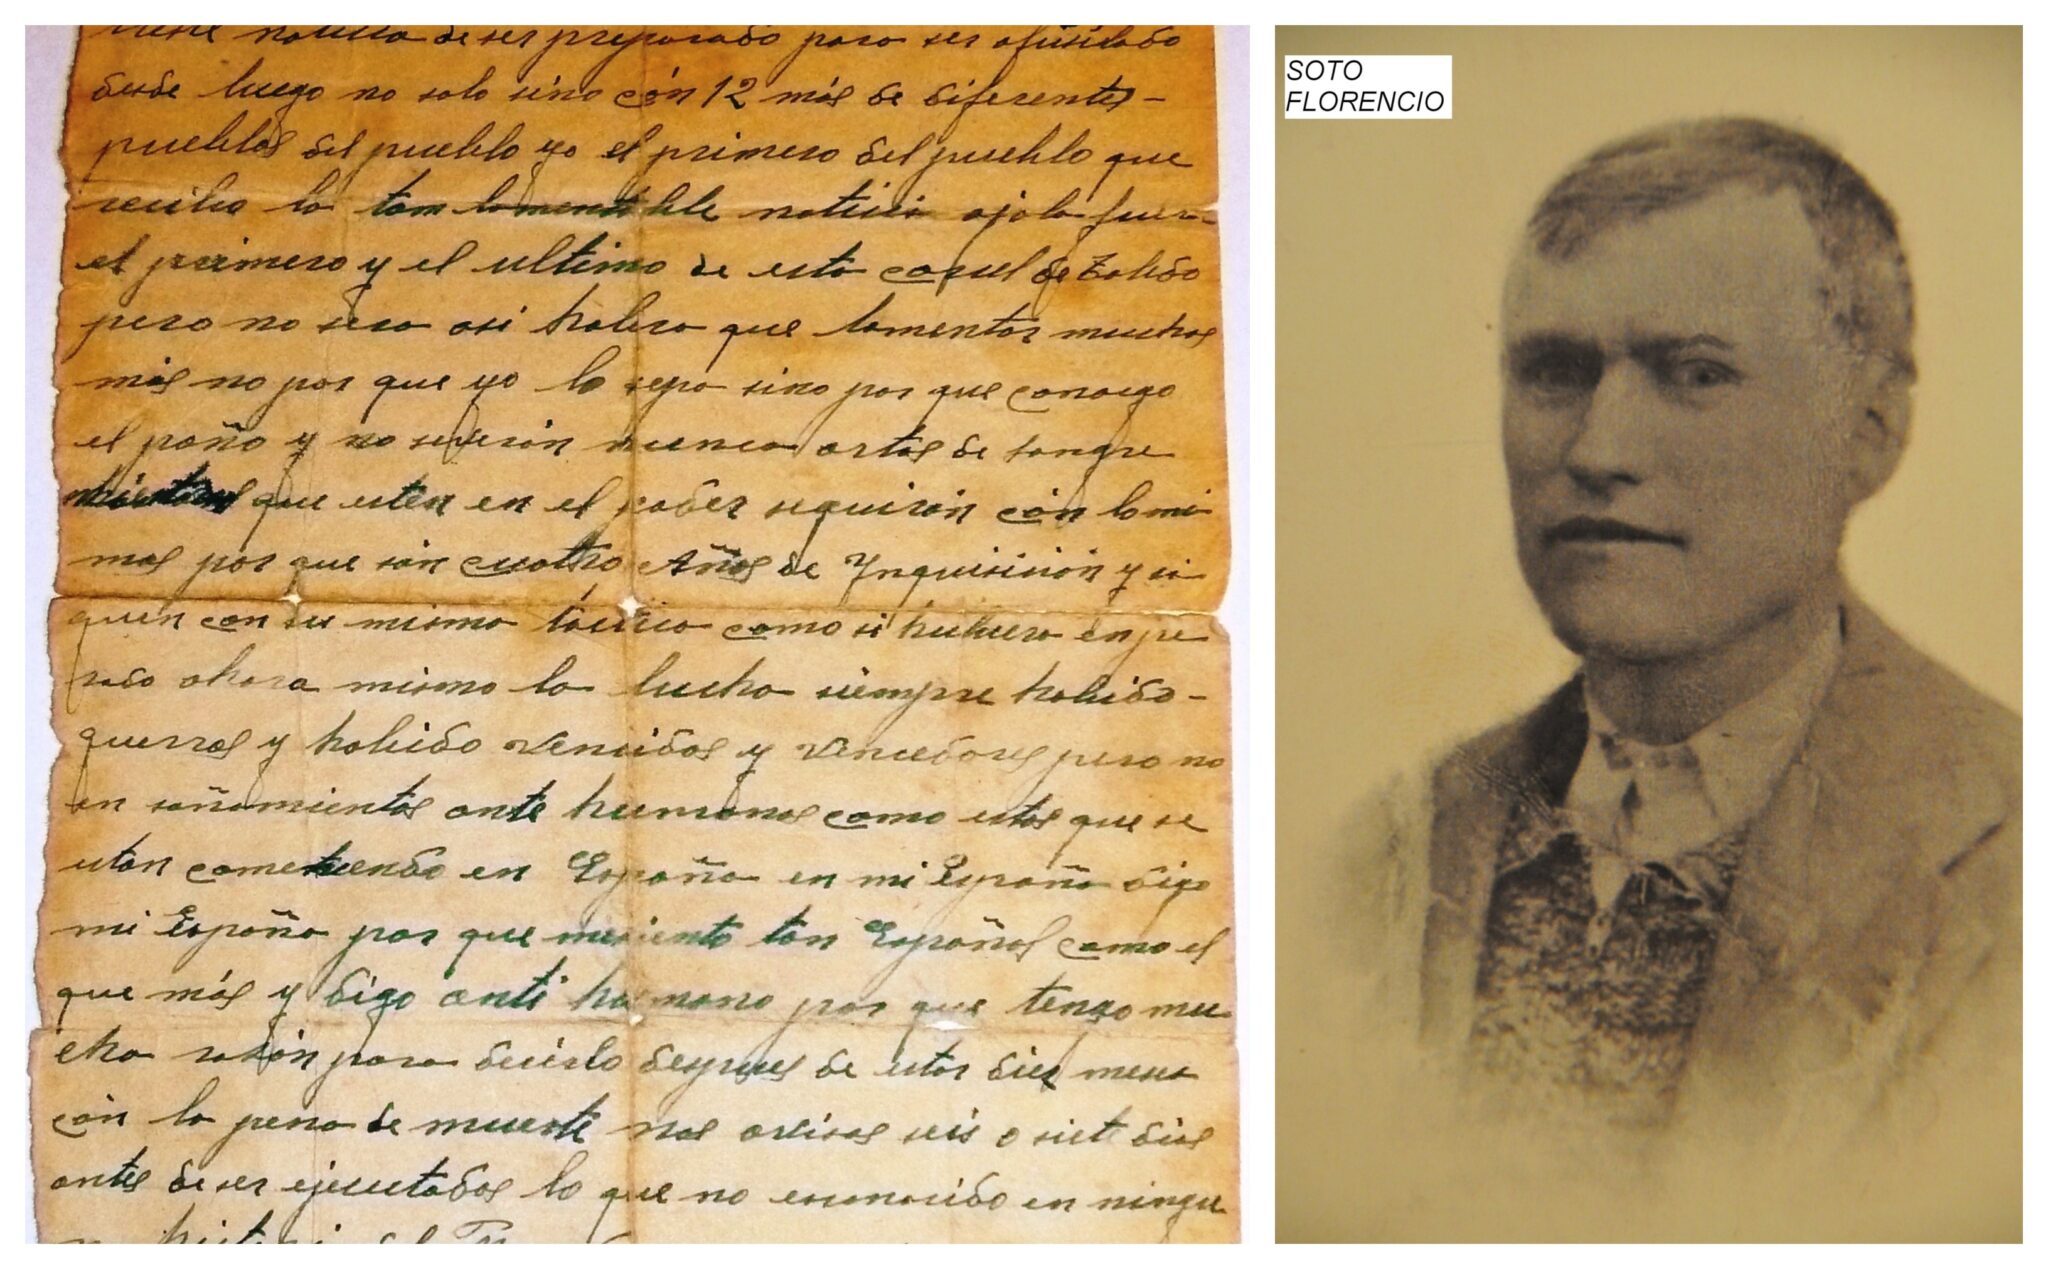 noticia de ser preparado para ser afusilado
desde luego no solo sino cón 12 más de diferentes-
pueblos del pueblo yo el primero del pueblo que
reciba la tam lamentable noticia ojala fuera
el primero y el ultimo de esta carcel de Toledo
pero no sera asi habra que lamentar muchos
más no por que yo lo sepa sino por que conozgo
el paño y no se verán nunca artos de sangre
mientras que esten en el poder seguirán cón lo mi
mos por que són cuatro Años de Ynquisición y si
guen con su misma táctica como si hubiera enpe
zado ahora mismo la lucha siempre habido-
guerras y habido vencidos y vencedores pero no
en sañamientos ante humanos como estos que se
estan cometiendo en España en mi España digo
mi España por que me siento tan Español como el
que más y digo anti humano por que tengo mu
cha razón para decirlo despues de estar diez meses
cón la pena de muerte nos avisas seis o siete dias
antes de ser ejecutados lo que no esconocido en ningu
SOTO
FLORENCIO